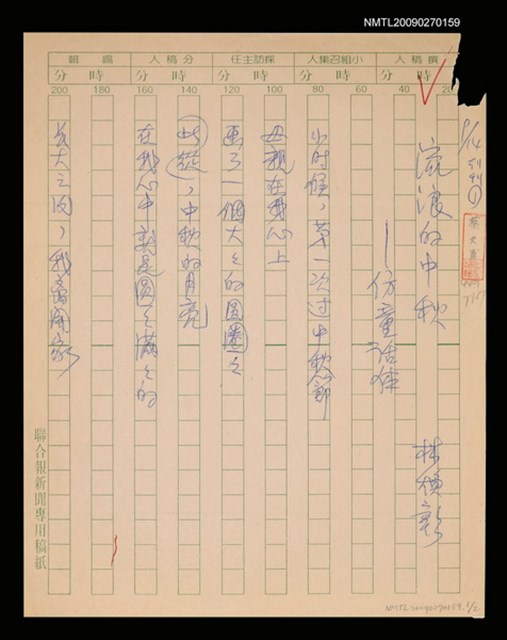 NMTL20090270159
撰稿人
小組召集人
採訪主任
分稿人
編輯
時 分
時 分
時 分
時 分
時 分
20 40 60 80 100 120 140 160 180 200
流浪的中秋
林煥彰
—仿童話体
小时候，第一次过中秋節
母親在我心上
画了一個大々的圓圈；
此後，中秋的月亮
在我心中就是圓々滿々的
長大之後，我离開家
聯合報新聞專用稿紙
NMTL20090270159 1/2